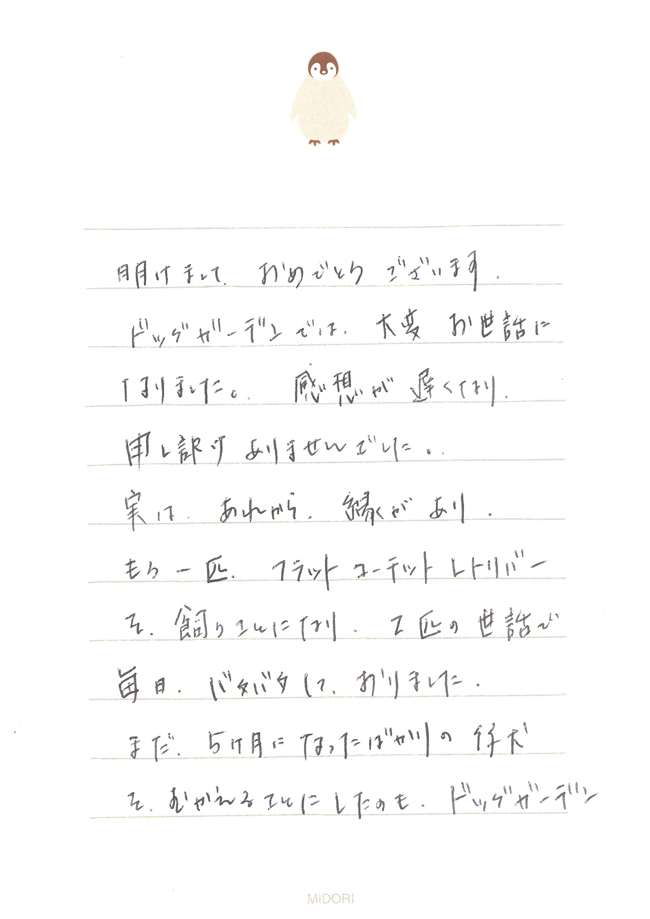 明けまして、おめでとうございます。
ドッグガーデンでは、大変 お世話に
なりました。 感想が 遅くなり、
申し訳ありませんでした。
実は、あれから、縁があり、
もう一匹、フラットコーテットレトリバー
を、飼うことになり、2匹の世話で
毎日、バタバタして、おりました。
まだ、5ヶ月になったばかりの仔犬
を、むかえることにしたのも、ドッグガーデン
MIDORI